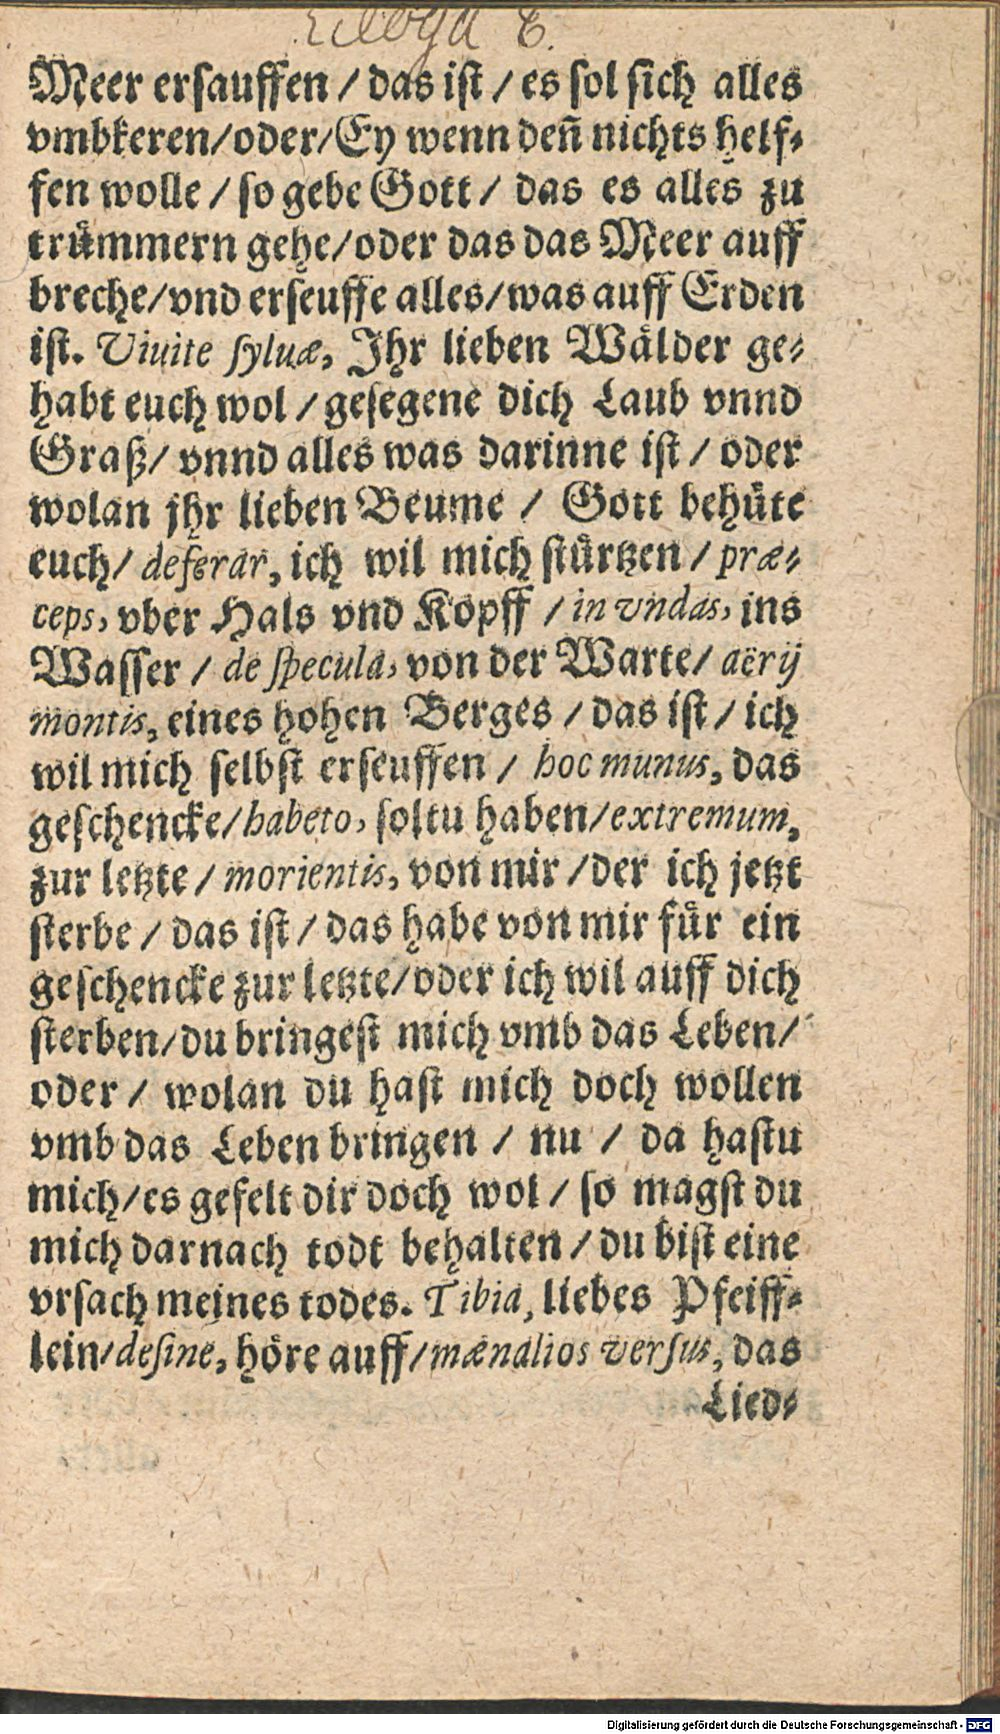 Ecloga 8.
Meer ersauffen / das ist / es sol sich alles
vmbkeren/oder/Ey wenn deñ nichts helf⸗
fen wolle / so gebe Gott / das es alles zu
truͤmmern gehe/oder das das Meer auff
breche/vnd erseuffe alles/was auff Erden
ist. Viuite syluæ, Jhr lieben Waͤlder ge⸗
habt euch wol / gesegene dich Laub vnnd
Graß/ vnnd alles was darinne ist / oder
wolan jhr lieben Beume / Gott behuͤte
euch/ deferar, ich wil mich stuͤrtzen / præ-
ceps, vber Hals vnd Kopff / in vndas, ins
Wasser / de specula, von der Warte/ aërij
montis, eines hohen Berges / das ist / ich
wil mich selbst erseuffen / hoc munus, das
geschencke/habeto, soltu haben/extremum,
zur letzte / morientis, von mir /der ich jetzt
sterbe / das ist / das habe von mir fuͤr ein
geschencke zur letzte/oder ich wil auff dich
sterben/du bringest mich vmb das Leben/
oder / wolan du hast mich doch wollen
vmb das Leben bringen / nu / da hastu
mich/es gefelt dir doch wol / so magst du
mich darnach todt behalten / du bist eine
vrsach meines todes. Tibia, liebes Pfeiff⸗
lein/desine, hoͤre auff/mænalios versus, das
Lied⸗
Digitalisierung gefördert durch die Deutsche Forschungsgemeinschaft - DFG